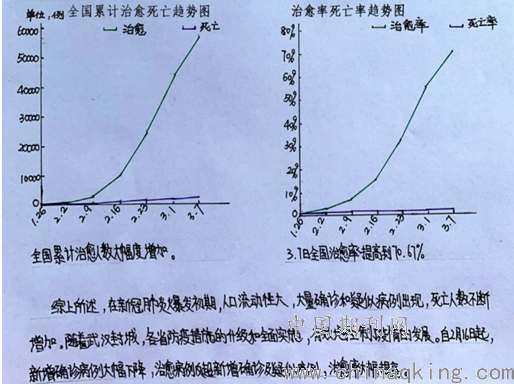 单位:例 全国累计治愈死亡趋势图
治愈 死亡
60000
50000
40000
30000
20000
10000
0
1.26 2.2 2.9 2.16 2.23 3.1 3.7
全国累计治愈人数大幅度增加。
治愈率死亡率趋势图
治愈率 死亡率
80%
70%
60%
50%
40%
30%
20%
10%
0
1.26 2.2 2.9 2.16 2.23 3.1 3.7
3.7日全国治愈率提高到70.67%
综上所述,在新冠肺炎爆发初期,人口流动性大,大量确诊和疑似病例出现,死亡人数不断
增加。随着武汉封城,各省防疫措施的升级和全面实施,发展。自2月16日起,
新增确诊病例大幅下降,治愈病例
中国教科网
www.chinaqking.com